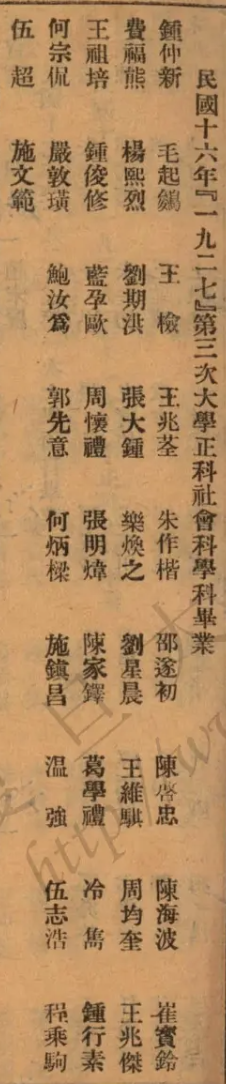 民國十六年『一九二七』第三次大學正科社會科學科畢業
鍾仲新 毛起鵕 王檢 王兆荃 朱作楷 邵遂初 陳啓忠 陳海波 崔寶鈴
費福熊 楊熙烈 劉期洪 張大鍾 樂煥之 劉星晨 王維騏 周均奎 王兆傑
王祖培 鍾俊修 藍孕歐 周懷禮 張明煒 陳家鐸 葛學禮 冷雋 鍾行素
何宗侃 嚴敦璜 鮑汝爲 郭先意 何炳樑 施鎮昌 温強 伍志浩 程乘駒
伍超 施文範